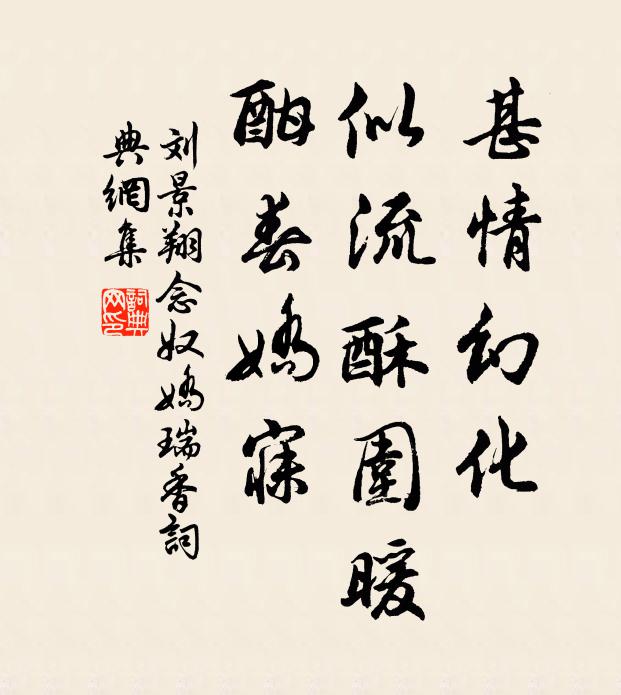 甚情幻化
似流酥圍暖
酣春嬌寐
刘景翔念奴嬌瑞香詞
典網集
詞典
网印